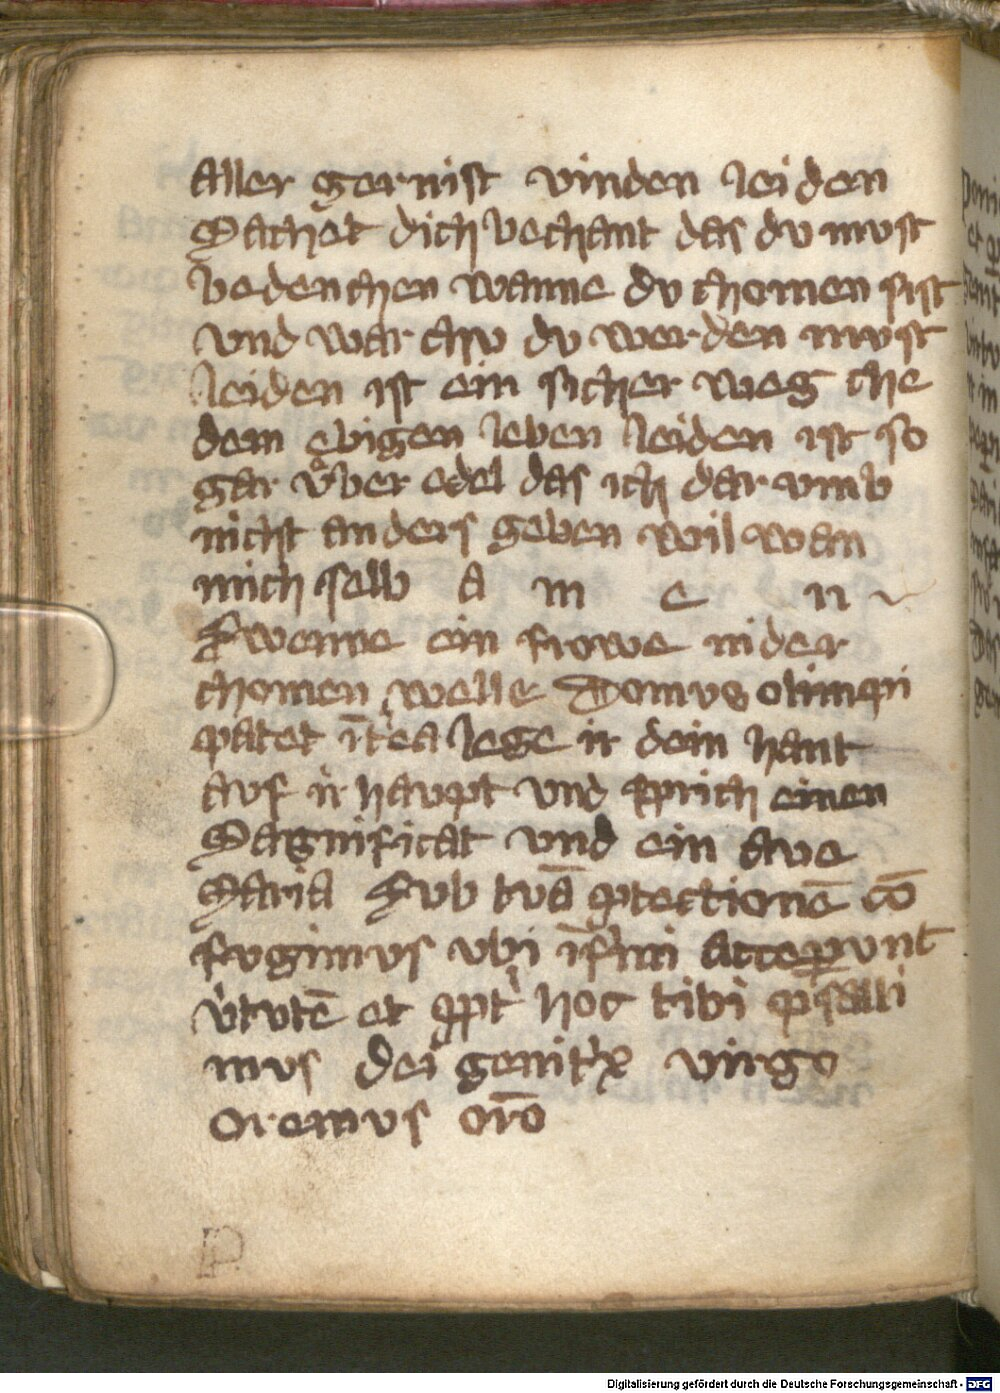 Aller gernist vinden leiden
Machet dich bechant das du must
bedenchen wanne du chomen pist
vnd war chu du werden must
leiden ist ein sicher weg che
dem ebigen leben leiden ist so
gar vͤber edel das ich dar vmb
nicht anders geben wil wan
mich selb A m e n
Swenne ein frowe nider
chomen welle Domus olimpi
patet it̄ea lege ir dein hant
auf ir haupt vnd sprich einen
Magnificat vnd ein aue
Maria Sub tuā ꝓtectionē cō
fugimus vbi īfirmi acceꝑunt
v̓tutē et ꝓpt̓ hoc tibi psalli
mus dei genitͥx virgo
Oremus orō
P
Digitalisierung gefördert durch die Deutsche Forschungsgemeinschaft - DFG